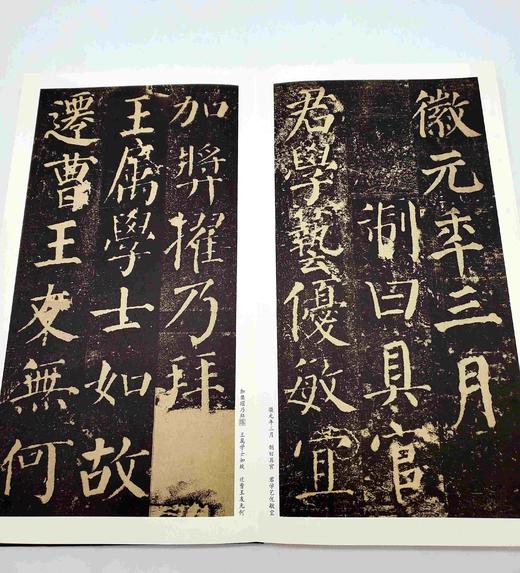 徽元年三月
制曰具官
君學藝優敏宜
徽元年三月 制曰具官 君学艺优敏宜
加弉擢乃拜
王屬學士如故
遷曹王友無何
加奖擢乃拜陈 王属学士如故 迁曹王友无何